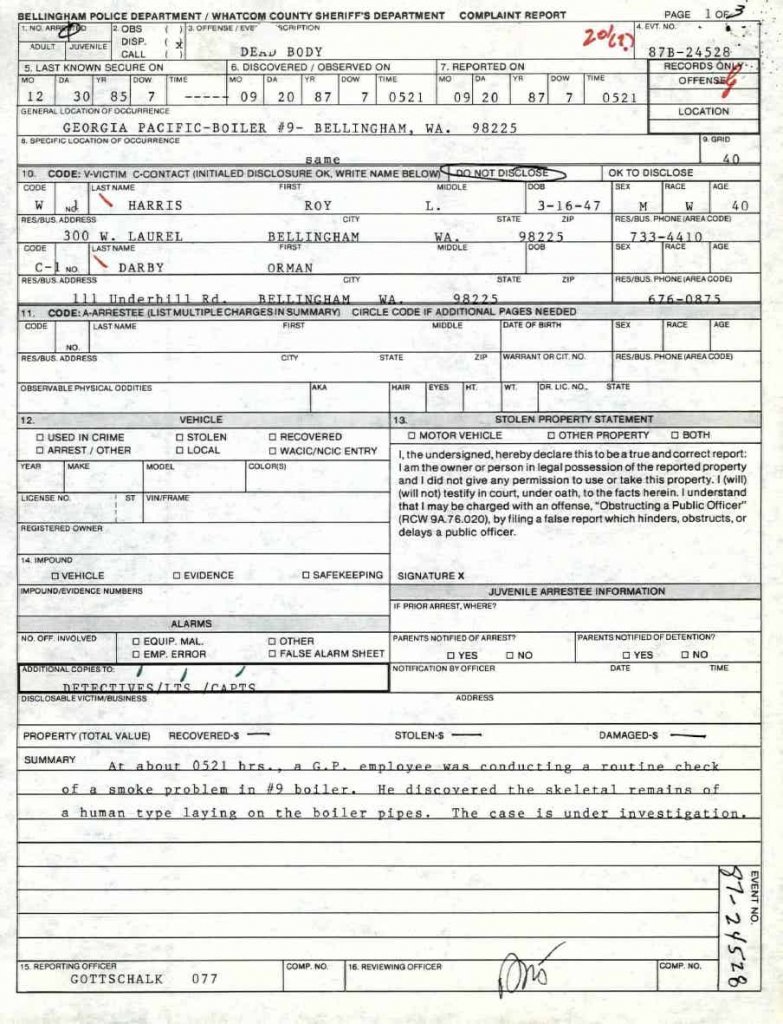 BELLINGHAM POLICE DEPARTMENT / WHATCOM COUNTY SHERIFF'S DEPARTMENT COMPLAINT REPORT PAGE 1 OF 3
1. NO. ARRESTED 2. OBS ( ) 3. OFFENSE / EVE SCRIPTION 4. EVT. NO.
ADULT JUVENILE DISP. ( x CALL ( ) DEAD BODY 20(?) 87B-24528
5. LAST KNOWN SECURE ON 6. DISCOVERED / OBSERVED ON 7. REPORTED ON RECORDS ONLY
MO DA YR DOW TIME MO DA YR DOW TIME MO DA YR DOW TIME OFFENSE
12 30 85 7 ----- 09 20 87 7 0521 09 20 87 7 0521
GENERAL LOCATION OF OCCURRENCE LOCATION
GEORGIA PACIFIC-BOILER #9- BELLINGHAM, WA. 98225
8. SPECIFIC LOCATION OF OCCURRENCE 9. GRID
same 40
10. CODE: V-VICTIM C-CONTACT (INITIALED DISCLOSURE OK, WRITE NAME BELOW) DO NOT DISCLOSE OK TO DISCLOSE
CODE LAST NAME FIRST MIDDLE DOB SEX RACE AGE
W 1 NO. HARRIS ROY L. 3-16-47 M W 40
RES/BUS. ADDRESS CITY STATE ZIP RES/BUS. PHONE (AREA CODE)
300 W. LAUREL BELLINGHAM WA. 98225 733-4410
CODE LAST NAME FIRST MIDDLE DOB SEX RACE AGE
C-1 NO. DARBY ORMAN
RES/BUS. ADDRESS CITY STATE ZIP RES/BUS. PHONE (AREA CODE)
111 Underhill Rd. BELLINGHAM WA. 98225 676-0875
11. CODE: A-ARRESTEE (LIST MULTIPLE CHARGES IN SUMMARY) CIRCLE CODE IF ADDITIONAL PAGES NEEDED
CODE LAST NAME FIRST MIDDLE DATE OF BIRTH SEX RACE AGE
NO.
RES/BUS. ADDRESS CITY STATE ZIP WARRANT OR CIT. NO. RES/BUS. PHONE (AREA CODE)
OBSERVABLE PHYSICAL ODDITIES AKA HAIR EYES HT. WT. DR. LIC. NO. STATE
12. VEHICLE 13. STOLEN PROPERTY STATEMENT
USED IN CRIME STOLEN RECOVERED MOTOR VEHICLE OTHER PROPERTY BOTH
ARREST / OTHER LOCAL WACIC/NCIC ENTRY
YEAR MAKE MODEL COLOR(S)
LICENSE NO. ST VIN/FRAME
REGISTERED OWNER
I, the undersigned, hereby declare this to be a true and correct report:
I am the owner or person in legal possession of the reported property
and I did not give any permission to use or take this property. I (will)
(will not) testify in court, under oath, to the facts herein. I understand
that I may be charged with an offense, "Obstructing a Public Officer"
(RCW 9A.76.020), by filing a false report which hinders, obstructs, or
delays a public officer.
14. IMPOUND
VEHICLE EVIDENCE SAFEKEEPING SIGNATURE X
IMPOUND/EVIDENCE NUMBERS JUVENILE ARRESTEE INFORMATION
IF PRIOR ARREST, WHERE?
ALARMS
NO. OFF. INVOLVED EQUIP. MAL. OTHER PARENTS NOTIFIED OF ARREST? PARENTS NOTIFIED OF DETENTION?
EMP. ERROR FALSE ALARM SHEET YES NO YES NO
ADDITIONAL COPIES TO: NOTIFICATION BY OFFICER DATE TIME
DETECTIVES/LTS./CAPTS
DISCLOSABLE VICTIM/BUSINESS ADDRESS
PROPERTY (TOTAL VALUE) RECOVERED-$ — STOLEN-$ — DAMAGED-$ —
SUMMARY At about 0521 hrs., a G.P. employee was conducting a routine check
of a smoke problem in #9 boiler. He discovered the skeletal remains of
a human type laying on the boiler pipes. The case is under investigation.
EVENT NO.
87-24528
15. REPORTING OFFICER COMP. NO. 16. REVIEWING OFFICER COMP. NO.
GOTTSCHALK 077